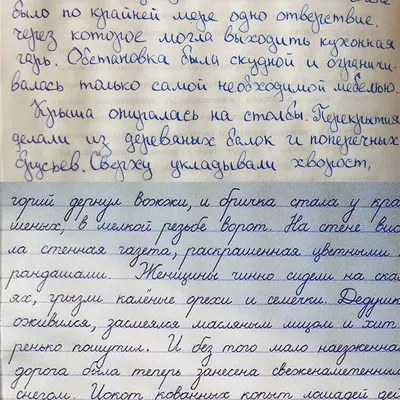 было по крайней мере одно отверствие,
через которое могла выходить кухонная
гарь. Обстановка была скудной и ограничи-
валась только самой необходимой мебелью.
Крыша опиралась на столбы. Перекрытия
делали из деревяных балок и поперечных
брусьев. Сверху укладывали хворост,
горий дернул вожжи, и бричка стала у кра
шеных, в мелкой резьбе ворот. На стене вис
ла стенная газета, раскрашенная цветными
рандашами. Женщины чинно сидели на ска
ях, грызли калёные орехи и семечки. Дедушк
оживился, засмеялся масляным лицом и хит
ренько пошутил. И без того мало наезженна
дорога была теперь занесена свеженаметенны
снегом. Цокот кованных копыт лошадей дей